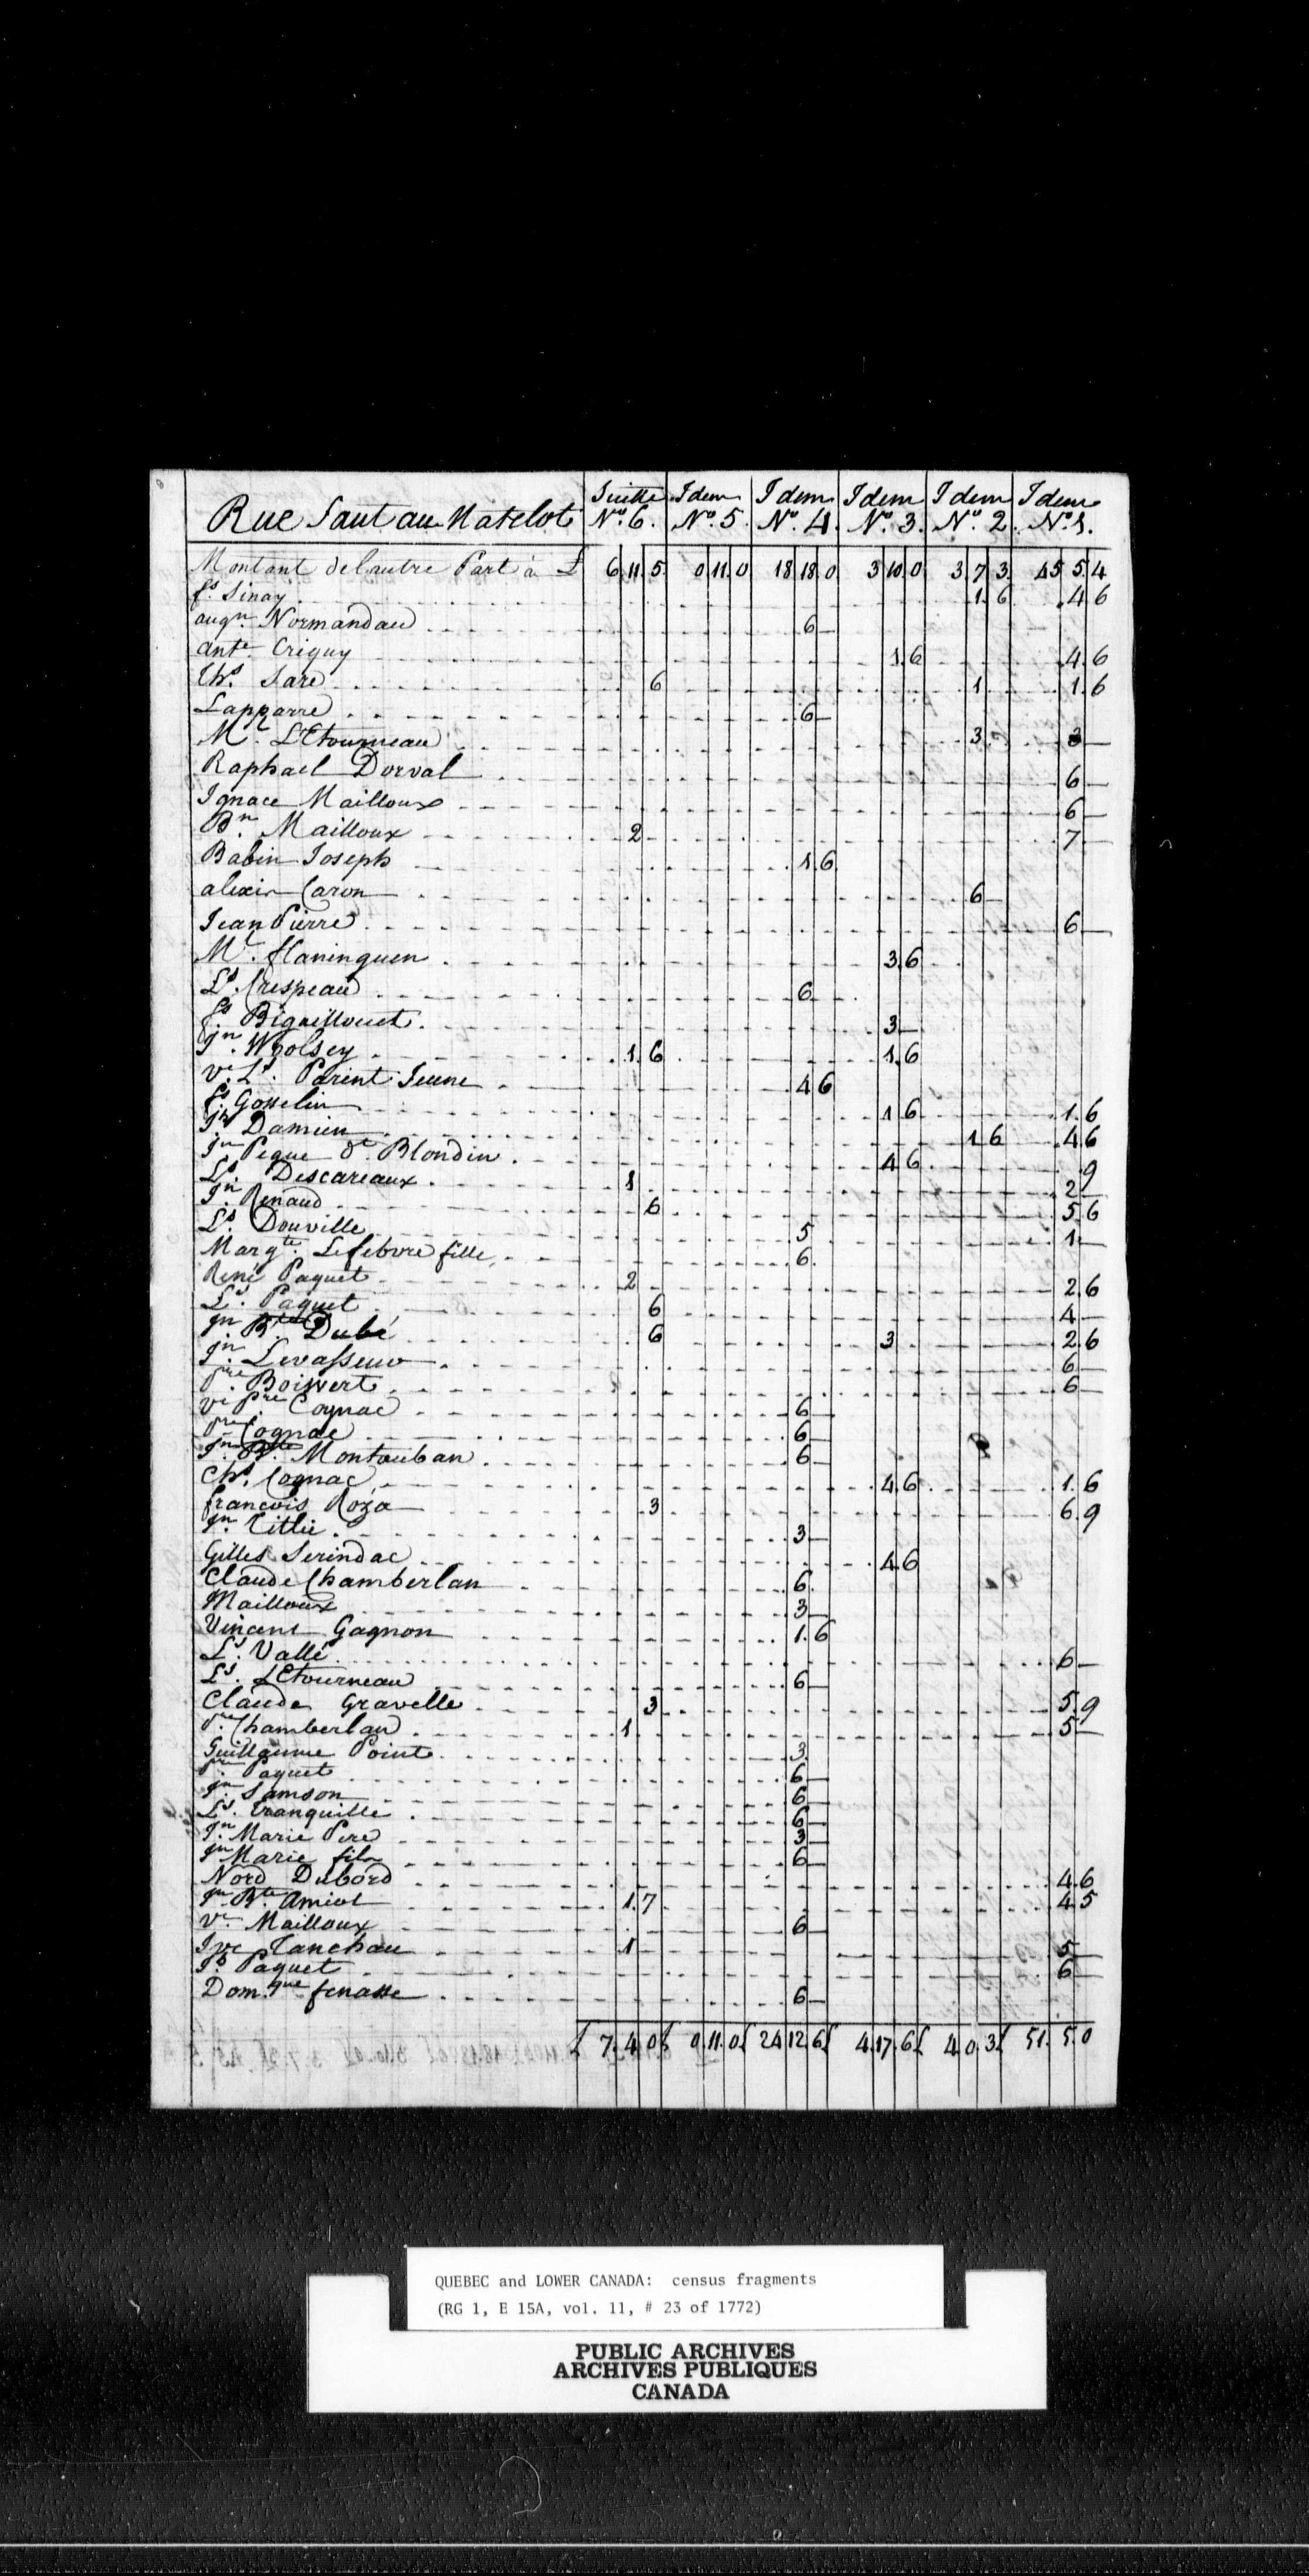 Suitte Idem Idem Idem Idem Idem
Rue Saut au Matelot No. 6. No. 5. No. 4. No. 3. No. 2. No. 1.
Montant de lautre Part à £ 6 11 5 0 11 0 18 18 0 3 10 0 3 7 3 45 5 4
fs. Sinay 1 6 4 6
augn. Normandau 6
ante. Criquy 1 6 4 6
Chs. Sare 6 1 1 6
Lapparre 6
Mr. LEtourneau 3 3
Raphael Dorval 6
Ignace Mailloux 6
Bn. Mailloux 2 7
Babin Joseph 1 6
alexis Caron 6
Jean Pierre 6
Mr. flaninguen 3 6
Ls. Crespeau 6
fs. Biguillouet 3
Jn. Woolsey 1 6 1 6
ve. Ls. Parent Jeune 4 6
fs. Gosselin 1 6 1 6
Jn. Damien 1 6 4 6
Jn Peque dt. Blondin 4 6 9
Ls. Descareaux 1 2
Jn. Renaud 6 5 6
Ls. Douville 5 1
Margte. Lefebvre fille 6
René Paquet 2 2 6
Ls. Paquet 6 4
Jn Bte Dubé 6 3 2 6
Jn. Levasseur 6
Pre. Boisvert 6
ve Pre Cognac 6
Pre Cognac 6
Jn. Bte. Montauban 6
Chs. Cognac 4 6 1 6
francois Roza 3 6 9
Jn. Tittie 3
Gilles Serindac 4 6
Claude Chamberlan 6
Mailloux 3
Vincent Gagnon 1 6
Ls. Vallé 6
Ls. LEtourneau 6
Claude Gravelle 3 5 9
Pre Chamberlan 1 5
Guillaume Pointe 3
Pre. Paquet 6
Jn. Samson 6
Ls. Tranquille 6
Jn. Marie Pere 3
Jn Marie fils 6
Nord Dubord 4 6
Jn Bte. Amiot 1 7 4 5
ve. Mailloux 6
Tanchau 1 5
Js. Paquet 6
Domque fenasse 6
£ 7 4 0 £ 0 11 0 £ 24 12 6 £ 4 17 6 £ 4 0 3 £ 51 5 0
QUEBEC and LOWER CANADA: census fragments
(RG 1, E 15A, vol. 11, # 23 of 1772)
PUBLIC ARCHIVES
ARCHIVES PUBLIQUES
CANADA